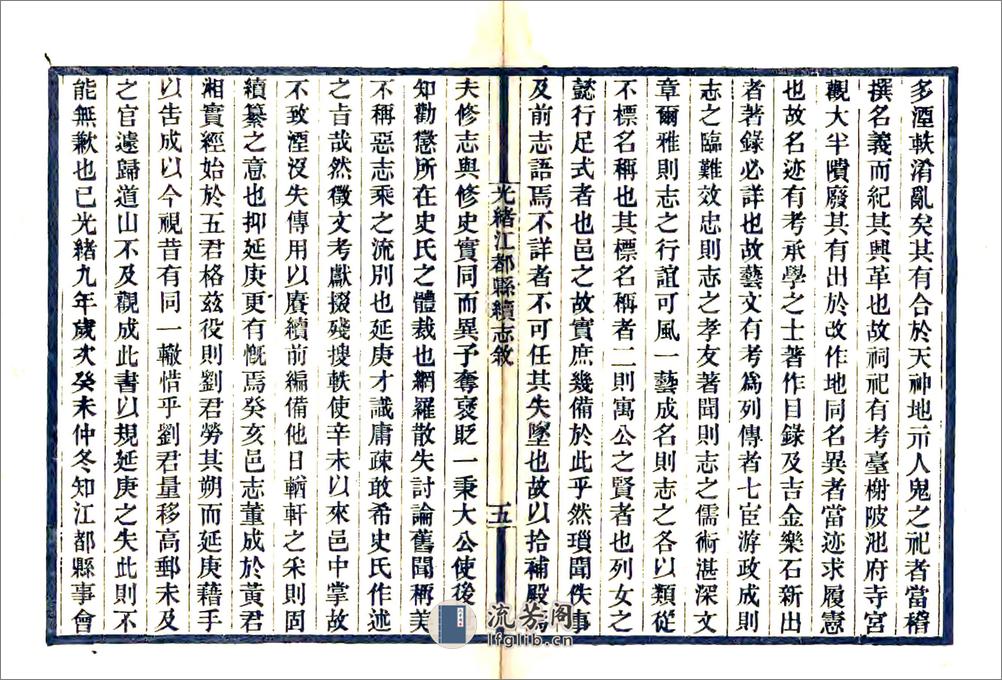 多湮軼淆亂矣其有合於天神地示人鬼之祀者當稽
撰名義而紀其興革也故祠祀有考臺榭陂池府寺宮
觀大半隳廢其有出於改作地同名異者當迹求履憲
也故名迹有考承學之士著作目錄及吉金樂石新出
者著錄必詳也故藝文有考為列傳者七宦游政成則
志之臨難效忠則志之孝友著聞則志之儒術湛深文
章爾雅則志之行誼可風一藝成名則志之各以類從
不標名稱也其標名稱者二則寓公之賢者也列女之
懿行足式者也邑之故實庶幾備於此乎然瑣聞佚事
及前志語焉不詳者不可任其失墜也故以拾補殿焉
光緒江都縣續志敘
五
夫修志與修史實同而異予奪褒貶一秉大公使後
知勸懲所在史氏之體裁也網羅散失討論舊聞稱美
不稱惡志乘之流別也延庚才識庸疎敢希史氏作述
之旨哉然徵文考獻掇殘搜軼使辛未以來邑中掌故
不致湮沒失傳用以賡續前編備他日輶軒之采則固
續纂之意也抑延庚更有慨焉癸亥邑志董成於黃君
湘實經始於五君格茲役則劉君勞其朔而延庚藉手
以告成以今視昔有同一轍惜乎劉君量移高郵未及
之官遽歸道山不及觀成此書以規延庚之失此則不
能無歉也已光緒九年歲次癸未仲冬知江都縣事會
流芳阁
lfglib.cn